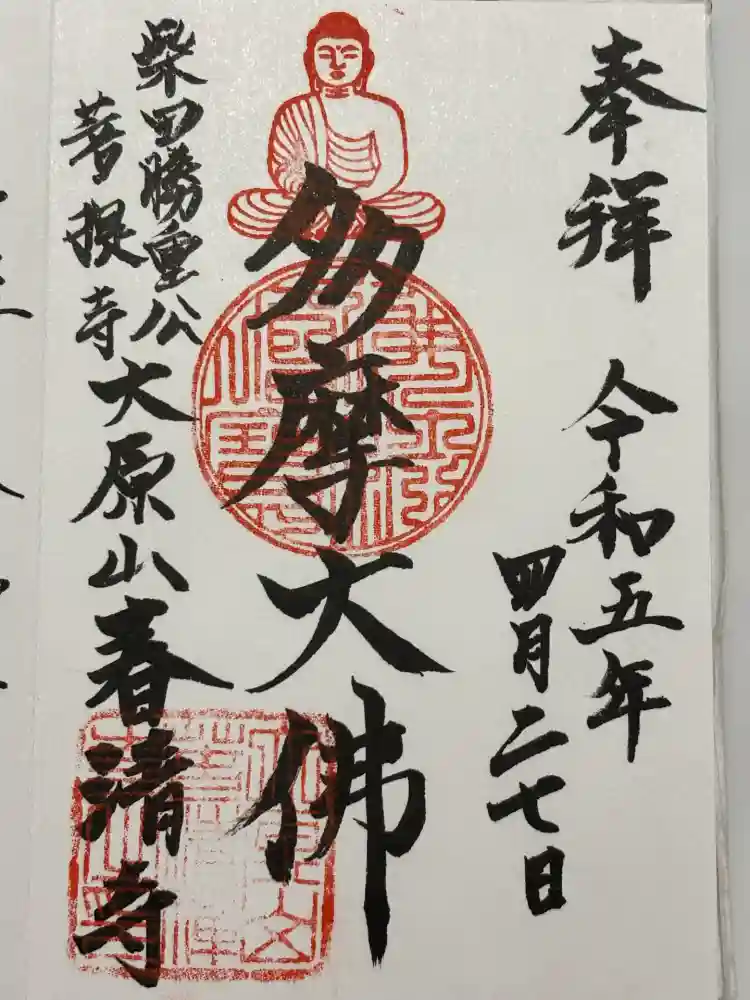 奉拝
令和五年
四月二七日
多摩大佛
柴田勝重公
菩提寺
大原山春清寺